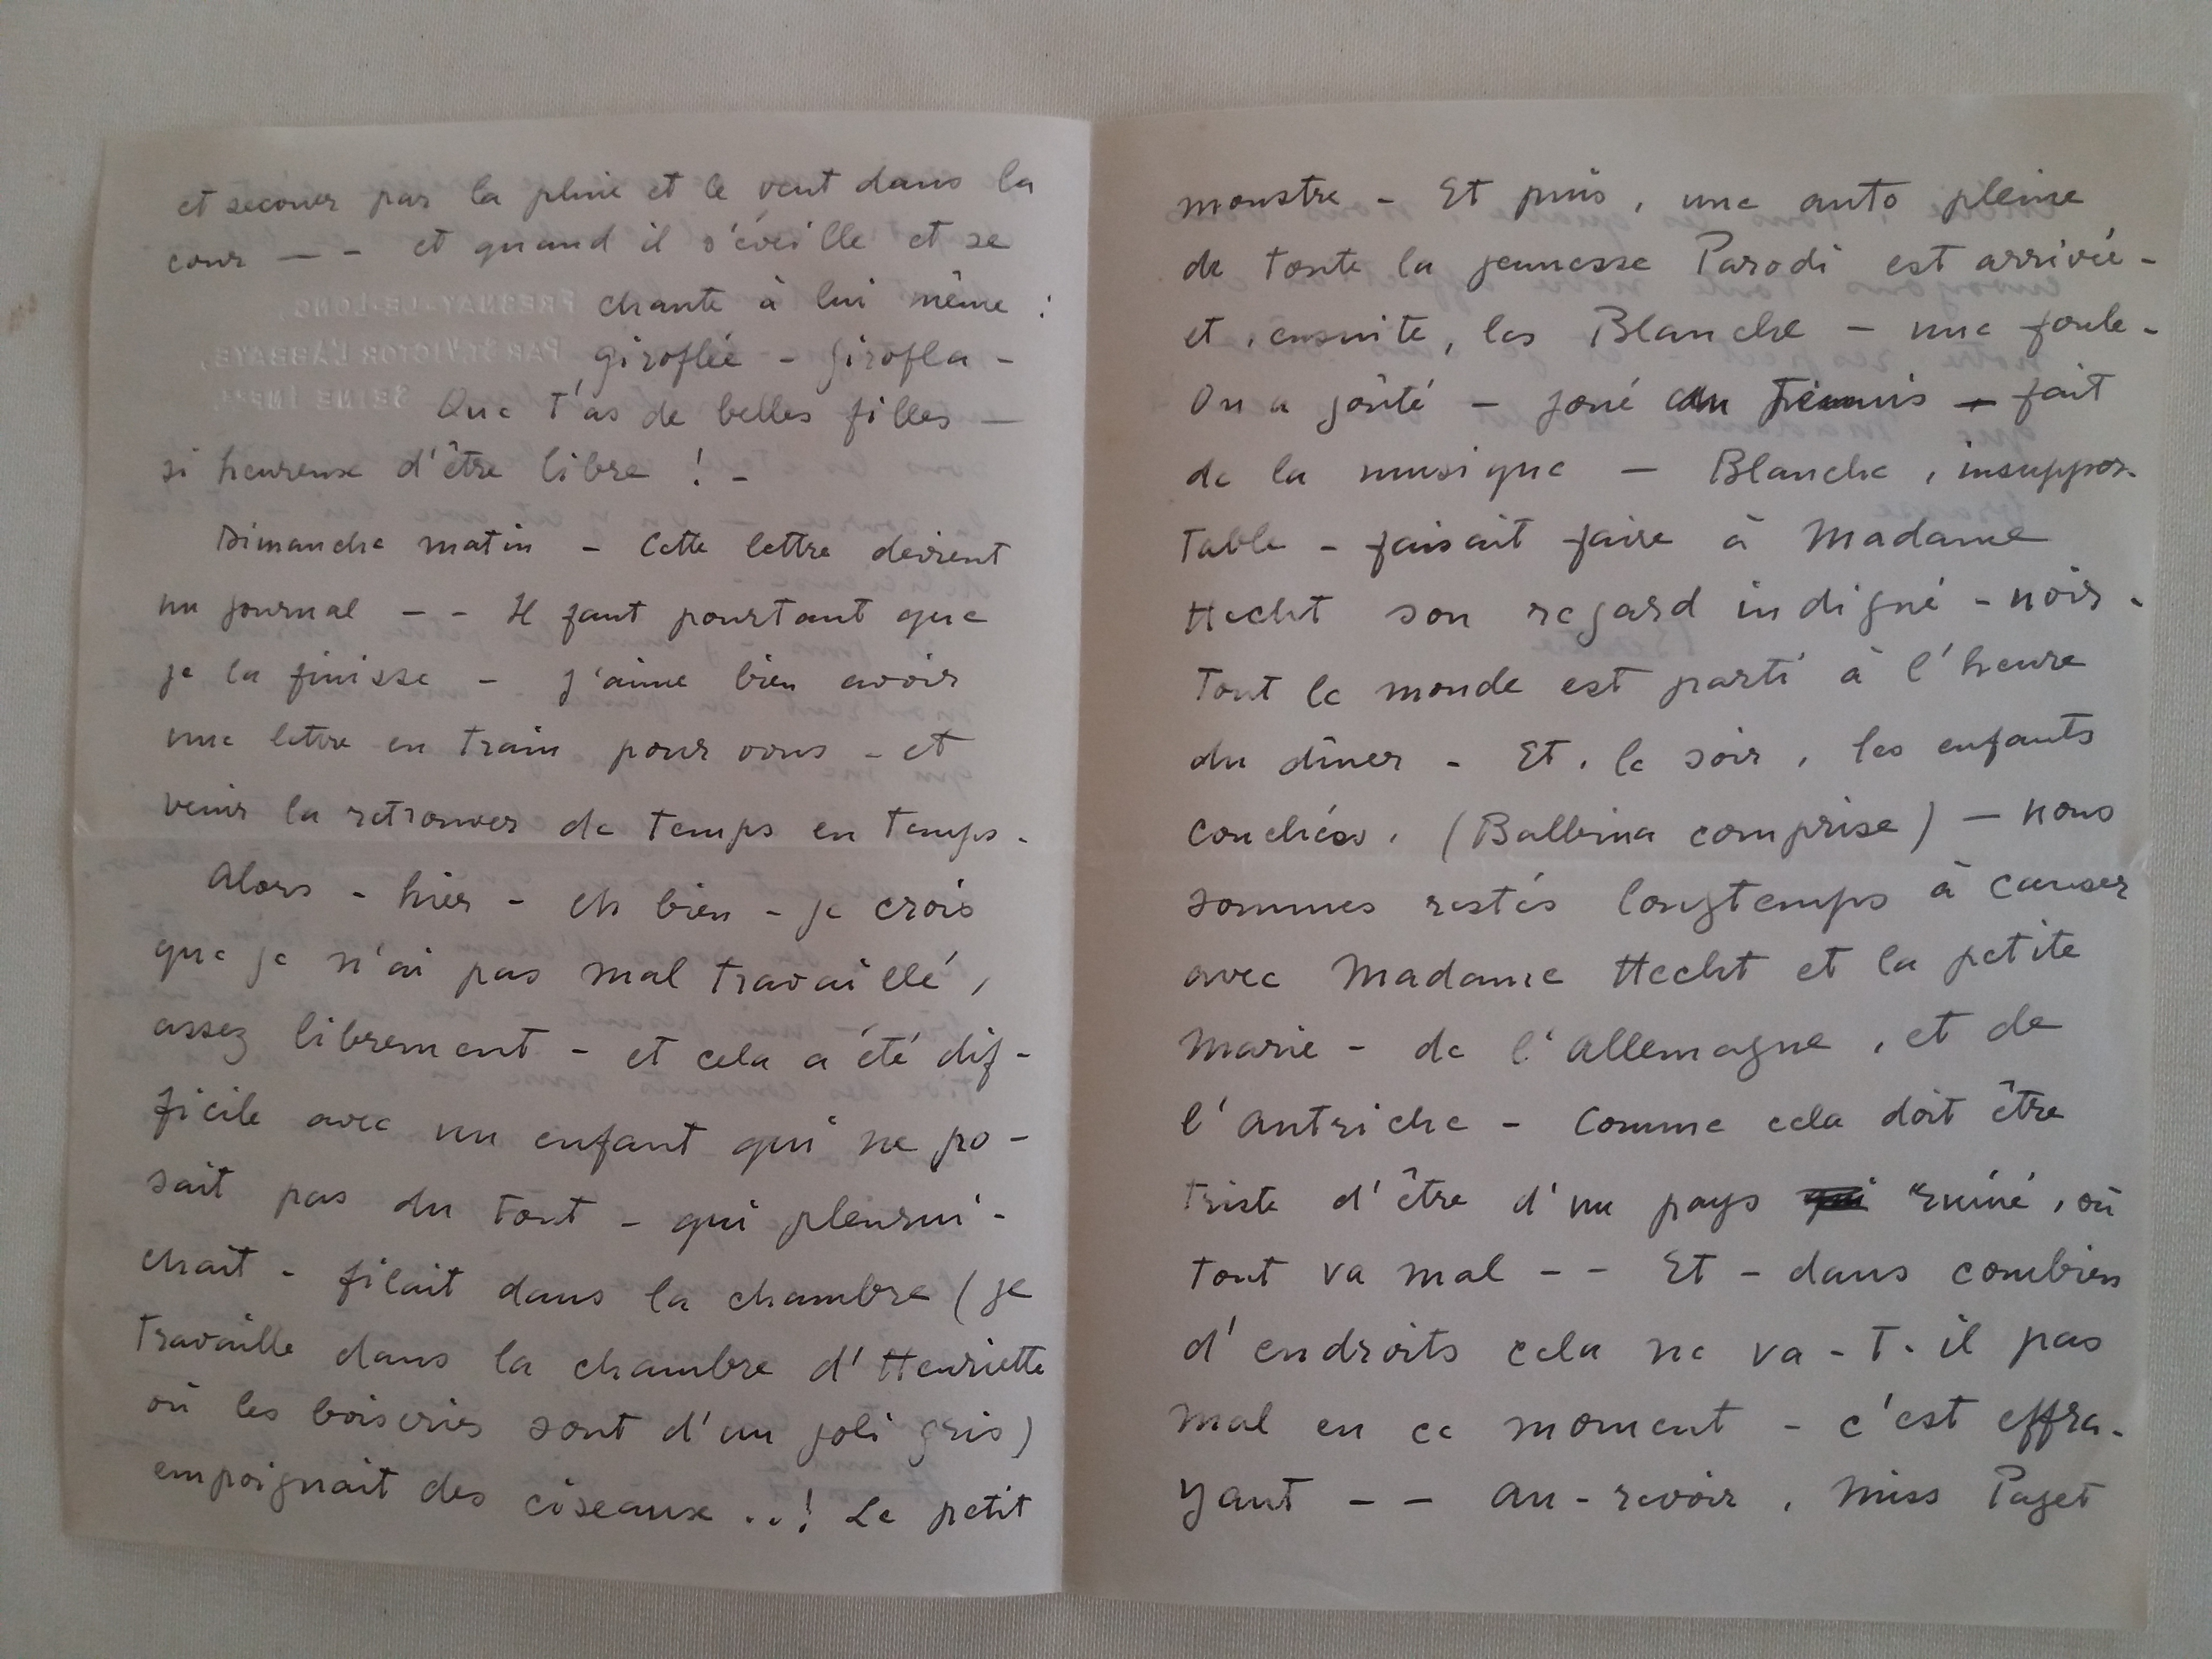 et secouer par la pluie et le vent dans la
cour — - et quand il s'éveille et se
chante à lui même :
giroflée - girofla -
Que t'as de belles filles —
si heureux d'être libre ! -
Dimanche matin - Cette lettre devient
un journal - - Il faut pourtant que
je la finisse - J'aime bien avoir
une lettre en train pour vous - et
venir la retrouver de temps en temps.
Alors - hier - eh bien - je crois
que je n'ai pas mal travaillé,
assez librement - et cela a été dif-
ficile avec un enfant qui ne po-
sait pas du tout - qui pleurni-
chait - filait dans la chambre (je
travaille dans la chambre d'Henriette
où les boiseries sont d'un joli gris)
empoignait des ciseaux ..! Le petit
monstre - Et puis, une auto pleine
de toute la jeunesse Parodi est arrivée -
et, ensuite, les Blanche - une foule -
On a goûté - joué au tennis - fait
de la musique - Blanche, insuppor-
table - faisait faire à Madame
Hecht son regard indigné - noir.
Tout le monde est parti à l'heure
du dîner - Et, le soir, les enfants
couchés, (Balbina comprise) - nous
sommes restés longtemps à causer
avec Madame Hecht et la petite
Marie - de l'Allemagne, et de
l'Autriche - Comme cela doit être
triste d'être d'un pays ruiné, où
tout va mal - - Et - dans combien
d'endroits cela ne va-t-il pas
mal en ce moment - c'est effra-
yant - - au-revoir, Miss Paget
FRESNAY-LE-LONG,
PAR ST VICTOR L'ABBAYE,
SEINE INFRE